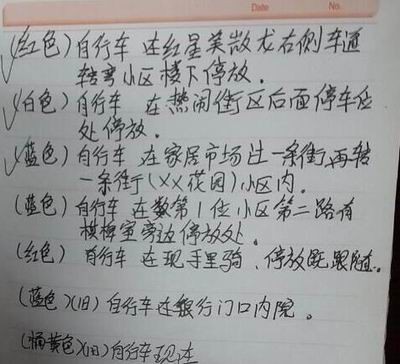 Date No.
(红色)自行车 在红星美数龙右侧车通
转弯小区楼下停放。
(白色)自行车 在热闹街区后面停车位
处停放。
(蓝色)自行车 在家居市场过一条街,再转
一条街(XX花园)小区内。
(蓝色)自行车 在数第1位小区第二路有
棋棒室旁边停放处。
(红色) 自行车 在现手里骑、停放既跟随。
(蓝色)(旧)自行车在银行门口内院。
(橘黄色)(旧)自行车现在